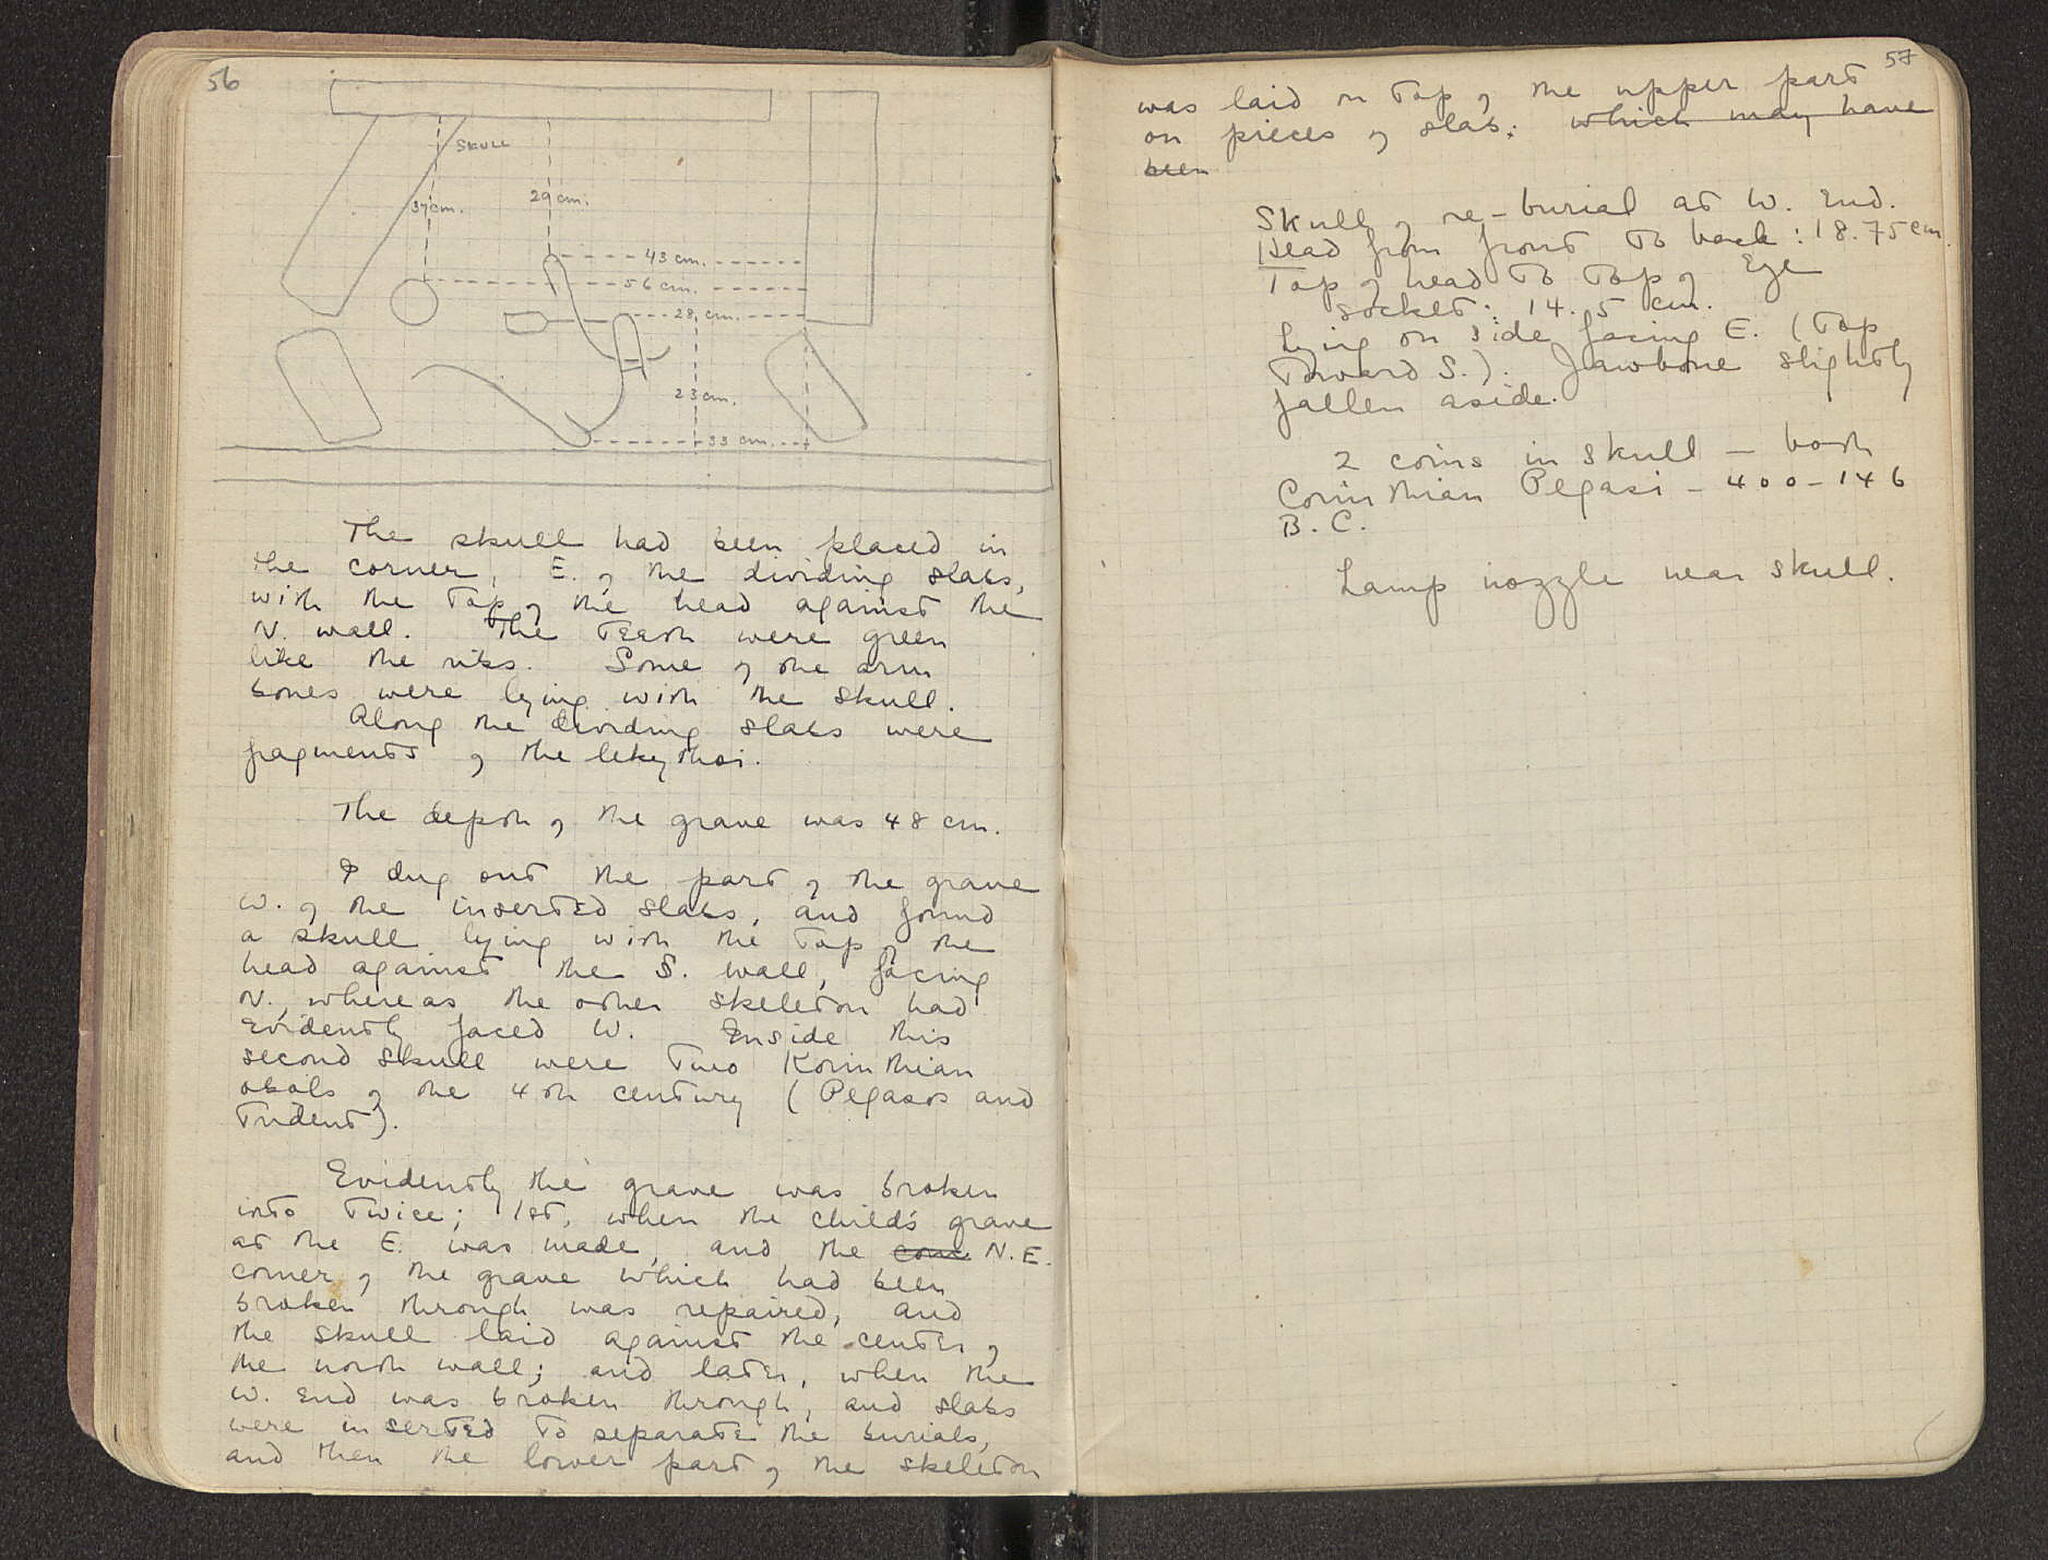 56
SKULL
37cm.
29cm.
43 cm.
56 cm.
28, cm.
23cm.
33 cm.
The skull had been placed in
the corner, E. of the dividing slabs,
with the top of the head against the
N. wall. The teeth were green
like the ribs. Some of the arm
bones were lying with the skull.
Along the dividing slabs were
fragments of the lekythoi.
The depth of the grave was 48 cm.
I dug out the part of the grave
W. of the inserted slabs, and found
a skull lying with the top of the
head against the S. wall, facing
N., whereas the other skeleton had
evidently faced W. Inside this
second skull were two Korinthian
obols of the 4th century (Pegasos and
Trident).
Evidently the grave was broken
into twice; 1st, when the child's grave
at the E. was made, and the corne N.E.
corner of the grave which had been
broken through was repaired, and
the skull laid against the center of
the north wall; and later, when the
W. end was broken through, and slabs
were inserted to separate the burials,
and then the lower part of the skeleton
57
was laid on top of the upper part
on pieces of slab: which may have
been
Skull of re-burial at W. End.
Head from front to back: 18.75cm.
Top of head to top of Eye
socket: 14.5 cm.
Lying on side facing E. (Top
Toward S.). Jawbone slightly
fallen aside.
2 coins in skull - both
Corinthian Pegasi - 400-146
B.C.
Lamp nozzle near skull.